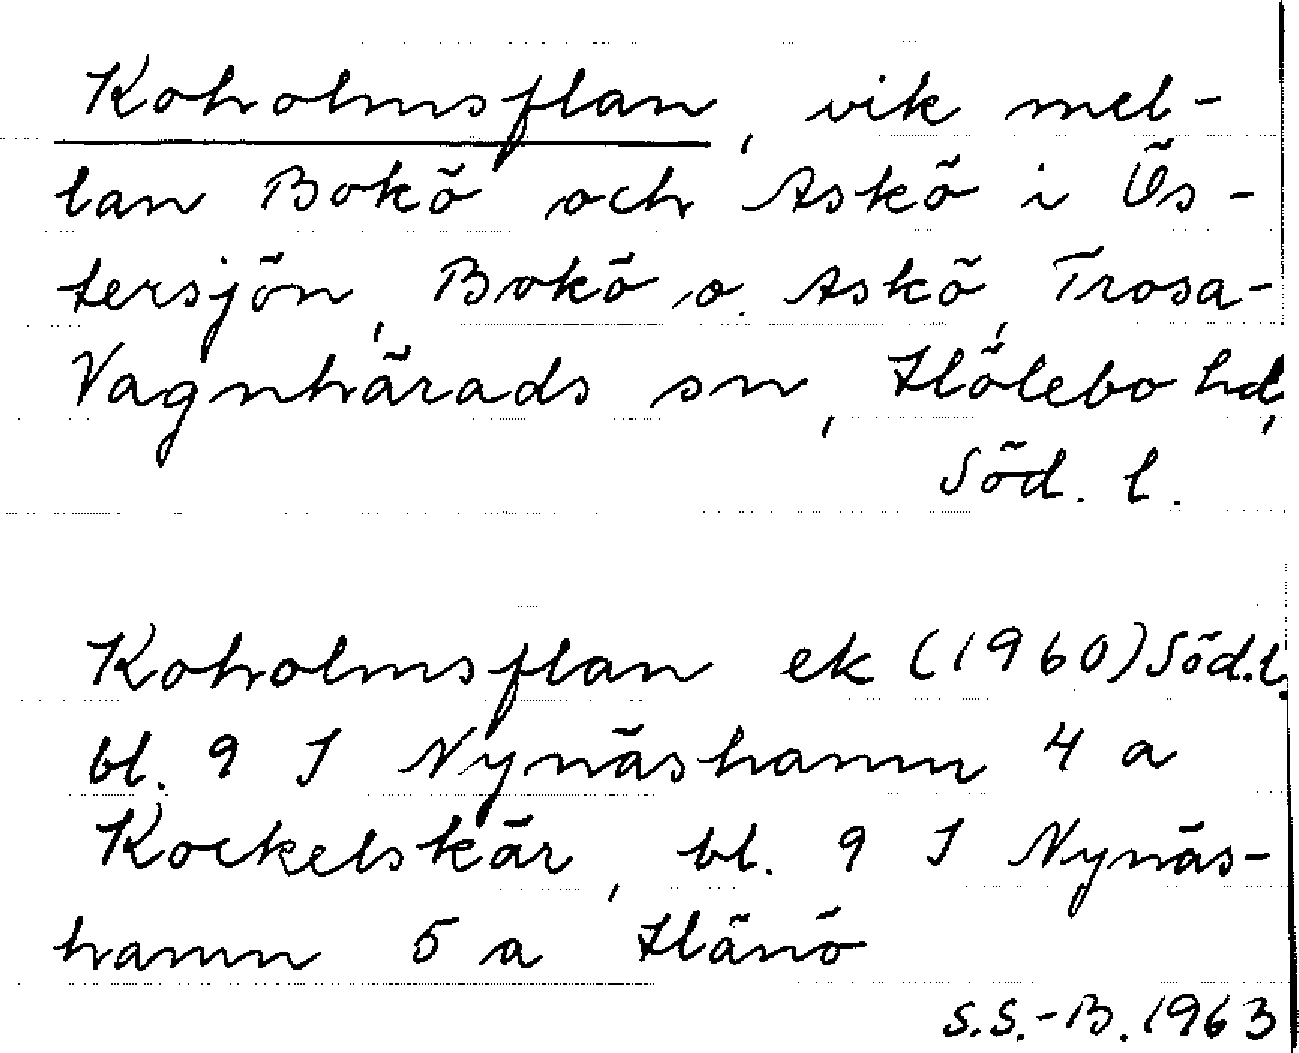 Koholmsflan, vik mel-
lan Bokö och Askö i Ös-
tersjön, Bokö o. Askö, Trosa-
Vagnhärads sn, Hölebo hd,
Söd. l.
Koholmsflan ek (1960) Söd. l.
bl. 9 I Nynäshamn 4 a
Kockelskär, bl. 9 I Nynäs-
hamn 5 a Hånö
S.S.-B. 1963